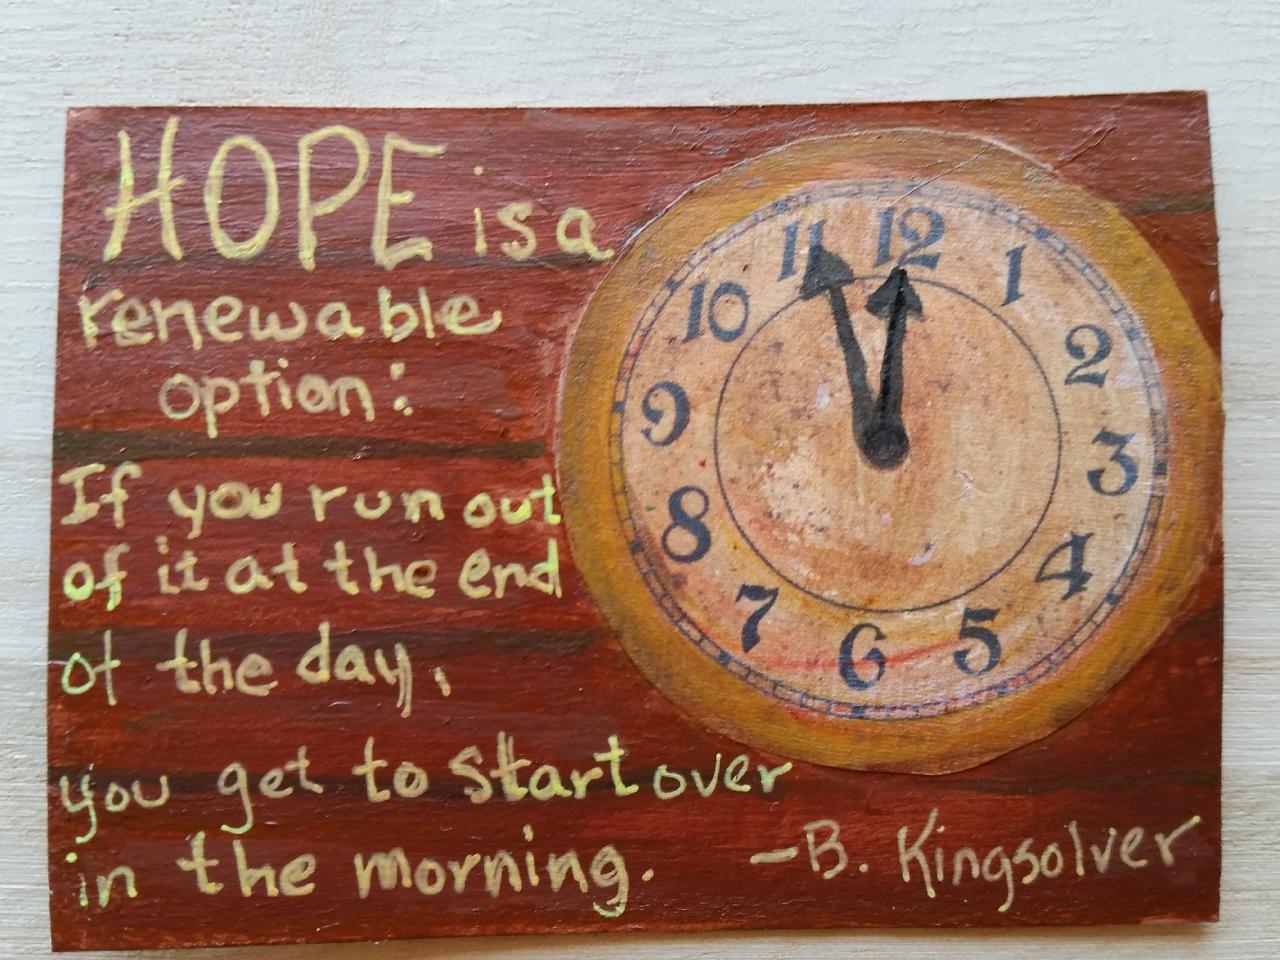 HOPE is a
renewable
option:
If you run out
of it at the end
of the day,
you get to start over
in the morning.
-B. Kingsolver
12
1
2
3
4
5
6
7
8
9
10
11